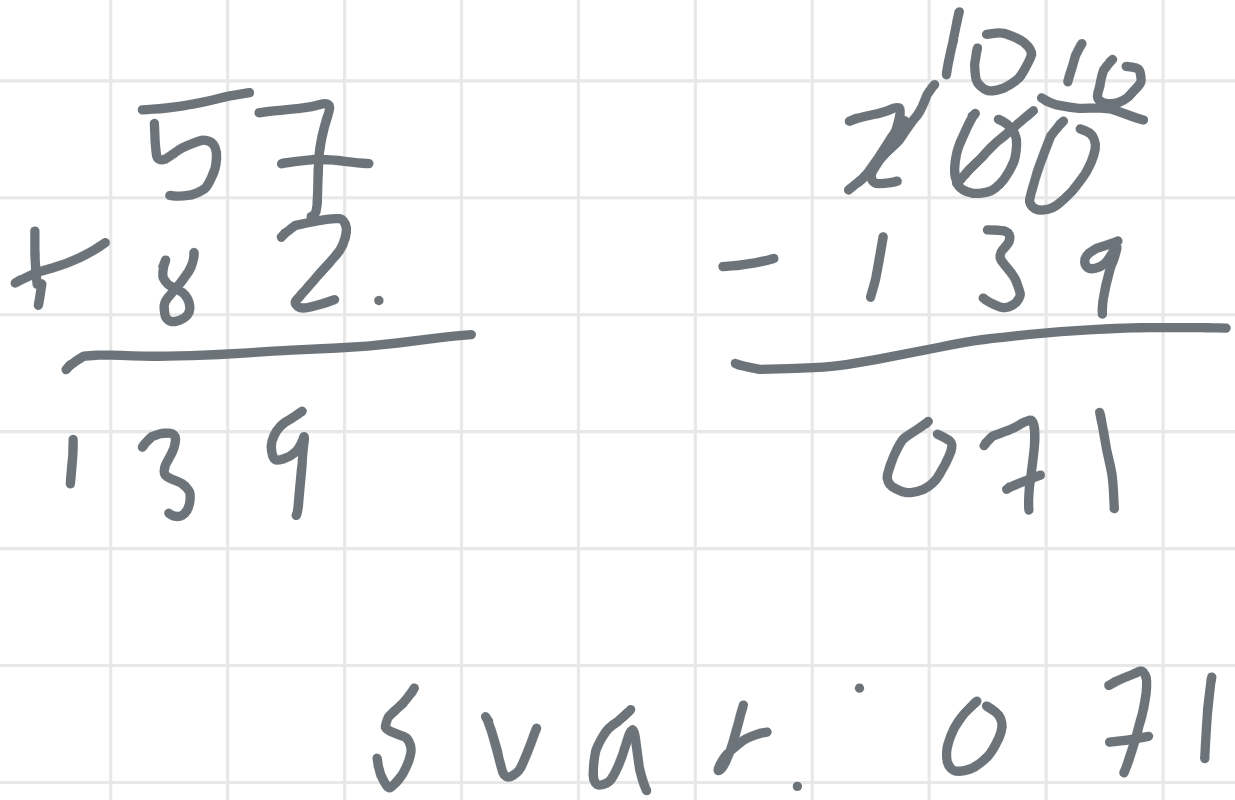 57
+ 82.
139
10 10
200
- 139
071
svar: 071